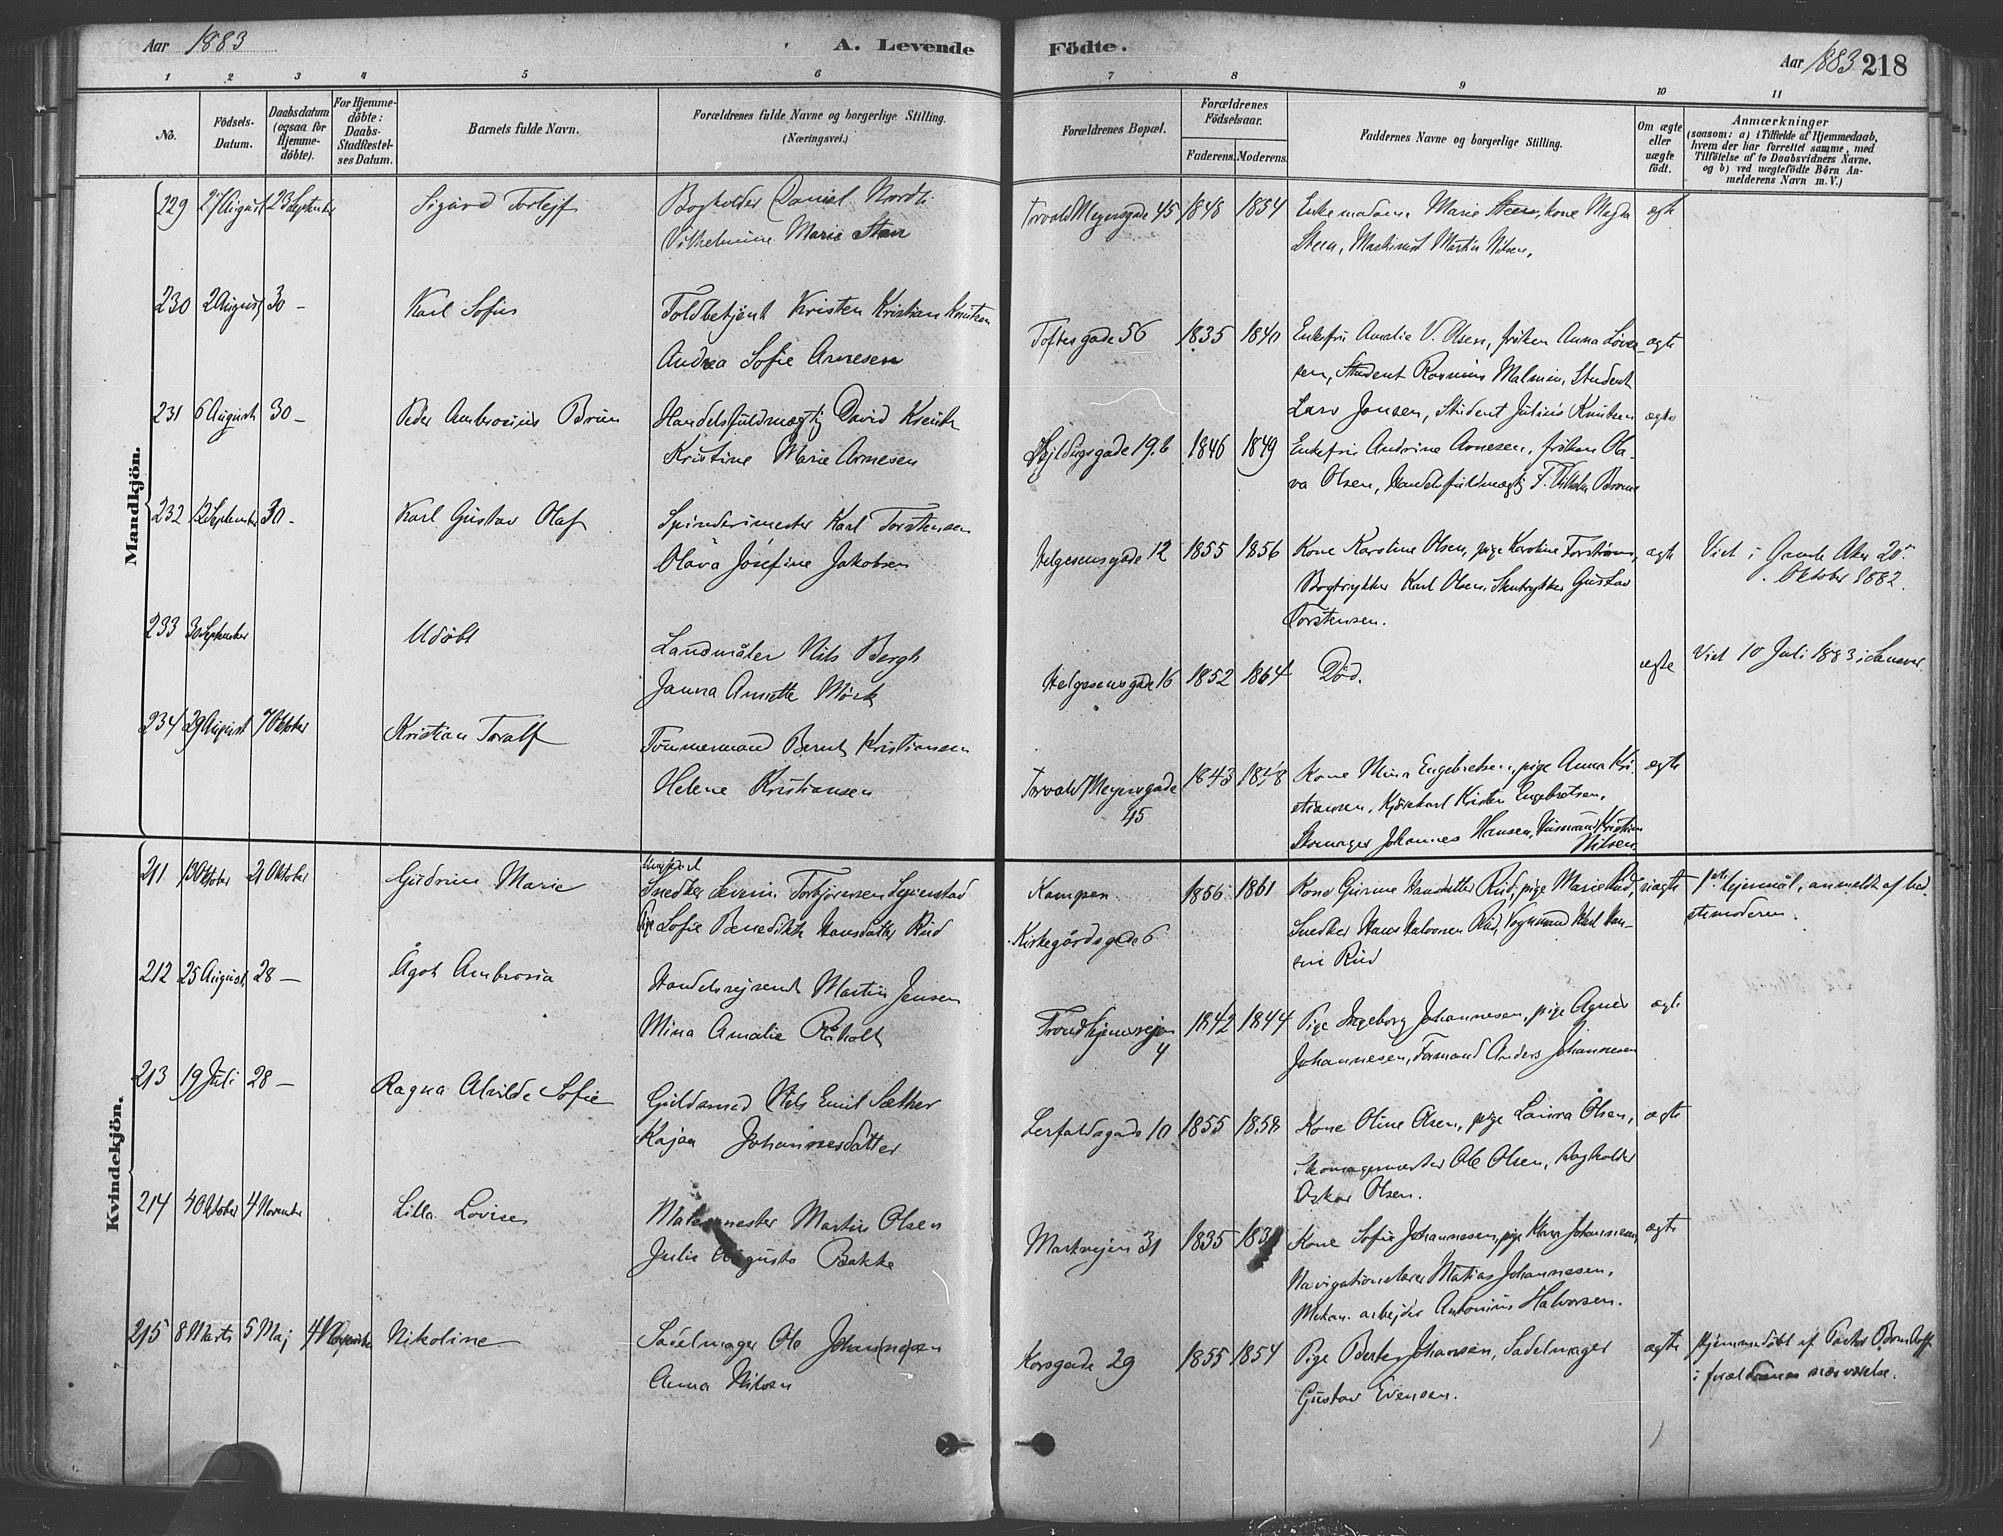 Aar 1883
A. Levende
Födte.
Aar 1883 218
1 2 3 4 5 6 7 8 9 10 11
No.
Födsels-
Datum.
Daabsdatum
(ogsaa for
Hjemme-
döbte).
For Hjemme-
döbte:
Daabs-
Stadfæstel-
ses Datum.
Barnets fulde Navn.
Forældrenes fulde Navne og borgerlige Stilling.
(Næringsvei.)
Forældrenes Bopæl.
Forældrenes
Födselsaar.
Faderens. Moderens.
Faddernes Navne og borgerlige Stilling.
Om ægte
eller
uægte
födt.
Anmærkninger
(saasom: a) i Tilfælde af Hjemmedaab,
hvem der har forrettet samme, med
Tilföielse af to Daabsvidners Navne.
og b) ved uægtefödte Börn An-
melderens Navn m. V.)
Mandkjön.
229 27 August 23 September Sigurd Torlejf Bogholder Daniel Nordli
Vilhelmine Marie Steen
Torvald Meyersgade 45 1848 1854 Enkemadame Marie Steen, kone Magda
Steen, Maskinist Martin Nilsen, ægte
230 2 August 30 – Karl Sofus Toldbetjent Kristen Kristian Knutsen
Andrea Sofie Arnesen
Toftesgade 56 1835 1840 Enkefru Amalie V. Olsen, frøken Anna Lover-
sen, Student Rasmus Malmin, Student
Lars Jonsen, Student Julius Knutsen ægte
231 6 August 30 – Peder Ambrosius Brun Handelsfuldmægtig David
Kristine Marie Arnesen
19b 1846 1849 Enkefru Andrine Arnesen, frøken Ola-
va Olsen, Handelsfuldmægtig T. Vilhelm ægte
232 12 September 30 – Karl Gustav Olaf Spinderimester Karl Torstensen
Olava Josefine Jakobsen
Helgesensgade 12 1855 1856 Kone Karoline Olsen, pige Karoline Forstrøm,
Bogtrykker Karl Olsen, Stentrykker Gustav
Torstensen. ægte
Viet i Gamle Aker 20.
Oktober 1882.
233 30 September Udøbt Landmåler Nils Bergh
Janna Annette Mørk
Helgesensgade 16 1852 1864 Død. ægte
Viet 10 Juli 1883 i
234 29 August 7 Oktober Kristian Toralf Tømmermand Bernt Kristiansen
Helene Kristiansen
Torvald Meyersgade
45
1843 1848 Kone Mina Engebretsen, pige Anna Kri-
stiansen, Kjørekarl Kristen Engebretsen,
Skomager Johannes Hansen, Husmand Kristian
Nilsen. ægte
Kvindekjön.
211 13 Oktober 21 Oktober Gudrun Marie Ungkarl
Snedker Severin Torbjørnsen
Pige Sofie Benedikte Hansdatter Rud
Kampen
Kirkegårdsgade 6
1856 1861 Kone Gurine Hansdatter Rud, pige Marie Rud,
Snedker Hans Halvorsen Rud, Vognmand Karl Han-
sen Rud uægte
1ste lejermål, anmeldt af bed-
stemoderen.
212 25 August 28 – Ågot Ambrosia Handelsrejsende Martin Jensen
Mina Amalie Råholt
Trondhjemsvejen
4
1842 1844 Pige Ingeborg Johannesen, pige Agnes
Johannesen, Formand Anders Johannesen ægte
213 19 Juli 28 – Ragna Alvilde Sofie Guldsmed Nils Emil Sæther
Kajsa Johannesdatter
Lerfaldsgade 10 1855 1858 Kone Oline Olsen, pige Laura Olsen,
Skomagermester Ole Olsen, Bogholder
Oskar Olsen. ægte
214 4 Oktober 4 November Lilla Lovise Malermester Martin Olsen
Julie Augusta Bakke
Markvejen 31 1835 Kone Sofie Johannesen, pige Klara Johannesen,
Navigationslærer Matias Johannesen,
Mekan. arbejder Antonius Halvorsen. ægte
215 8 Marts 5 Maj 4 November Nikoline Sadelmager Ole Johannesen
Anna Nilsen
Korsgade 29 1855 1854 Pige Berte Johansen, Sadelmager
Gustav Evensen. ægte
Hjemmedøbt af Pastor
i forældrenes nærværelse.